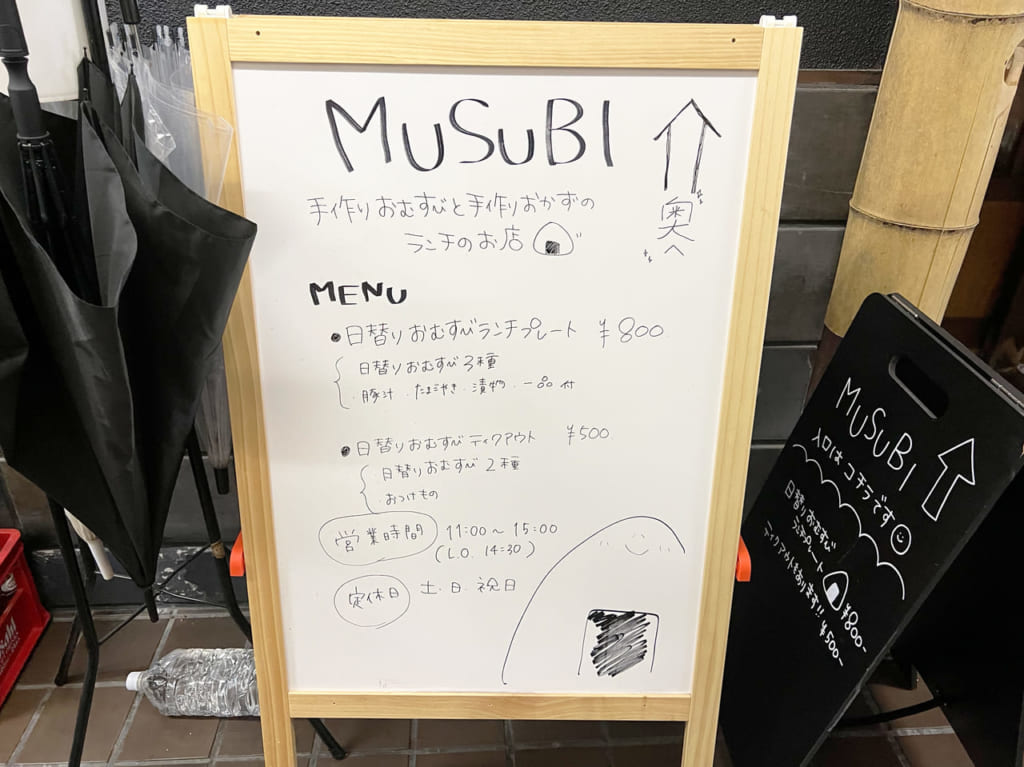 MUSUBI
手作りおむすびと手作りおかずの
ランチのお店
奥へ
MENU
●日替りおむすびランチプレート ¥800
日替りおむすび3種
・豚汁・たまごやき・漬物・一品付
●日替りおむすびテイクアウト ¥500
・日替りおむすび2種
・おつけもの
営業時間 11:00〜15:00
(L.O. 14:30)
定休日 土・日・祝日
MUSUBI
入口はコチラです
日替りおむすび
ランチプレート ¥800-
テイクアウトもあります!! ¥500-